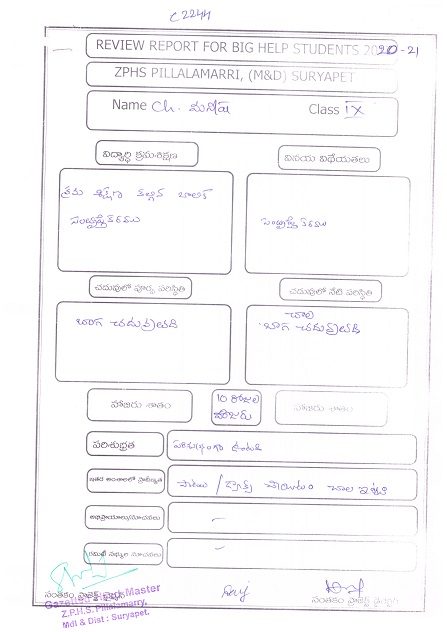 C2244
REVIEW REPORT FOR BIG HELP STUDENTS 2020-21
ZPHS PILLALAMARRI, (M&D) SURYAPET
Name Ch. మనీష్ Class IX
విద్యార్థి క్రమశిక్షణ
వినయ విధేయతలు
క్రమ శిక్షణ కల్గిన బాలిక
సంతృప్తికరము
సంతృప్తికరము
చదువులో పూర్వ పరిస్థితి
చదువులో నేటి పరిస్థితి
బాగ చదువుతుంది
చాల
బాగ చదువుతుంది
హాజరు శాతం
10 రోజుల
హాజరు
హాజరు శాతం
పరిశుభ్రత
పరిశుభ్రంగా ఉంటుంది
ఇతర అంశాలలో ప్రావీణ్యత
పాటలు / డ్యాన్స్ చేయటం చాల ఇష్టం
అభిప్రాయాలు/సూచనలు
-
కమిటీ సభ్యుల సూచనలు
-
సంతకం, ప్రాజెక్ట్ చైర్మన్
Gazetted Head Master
Z.P.H.S. Pillalamarry,
Mdl & Dist : Suryapet.
సంతకం, ప్రాజెక్ట్